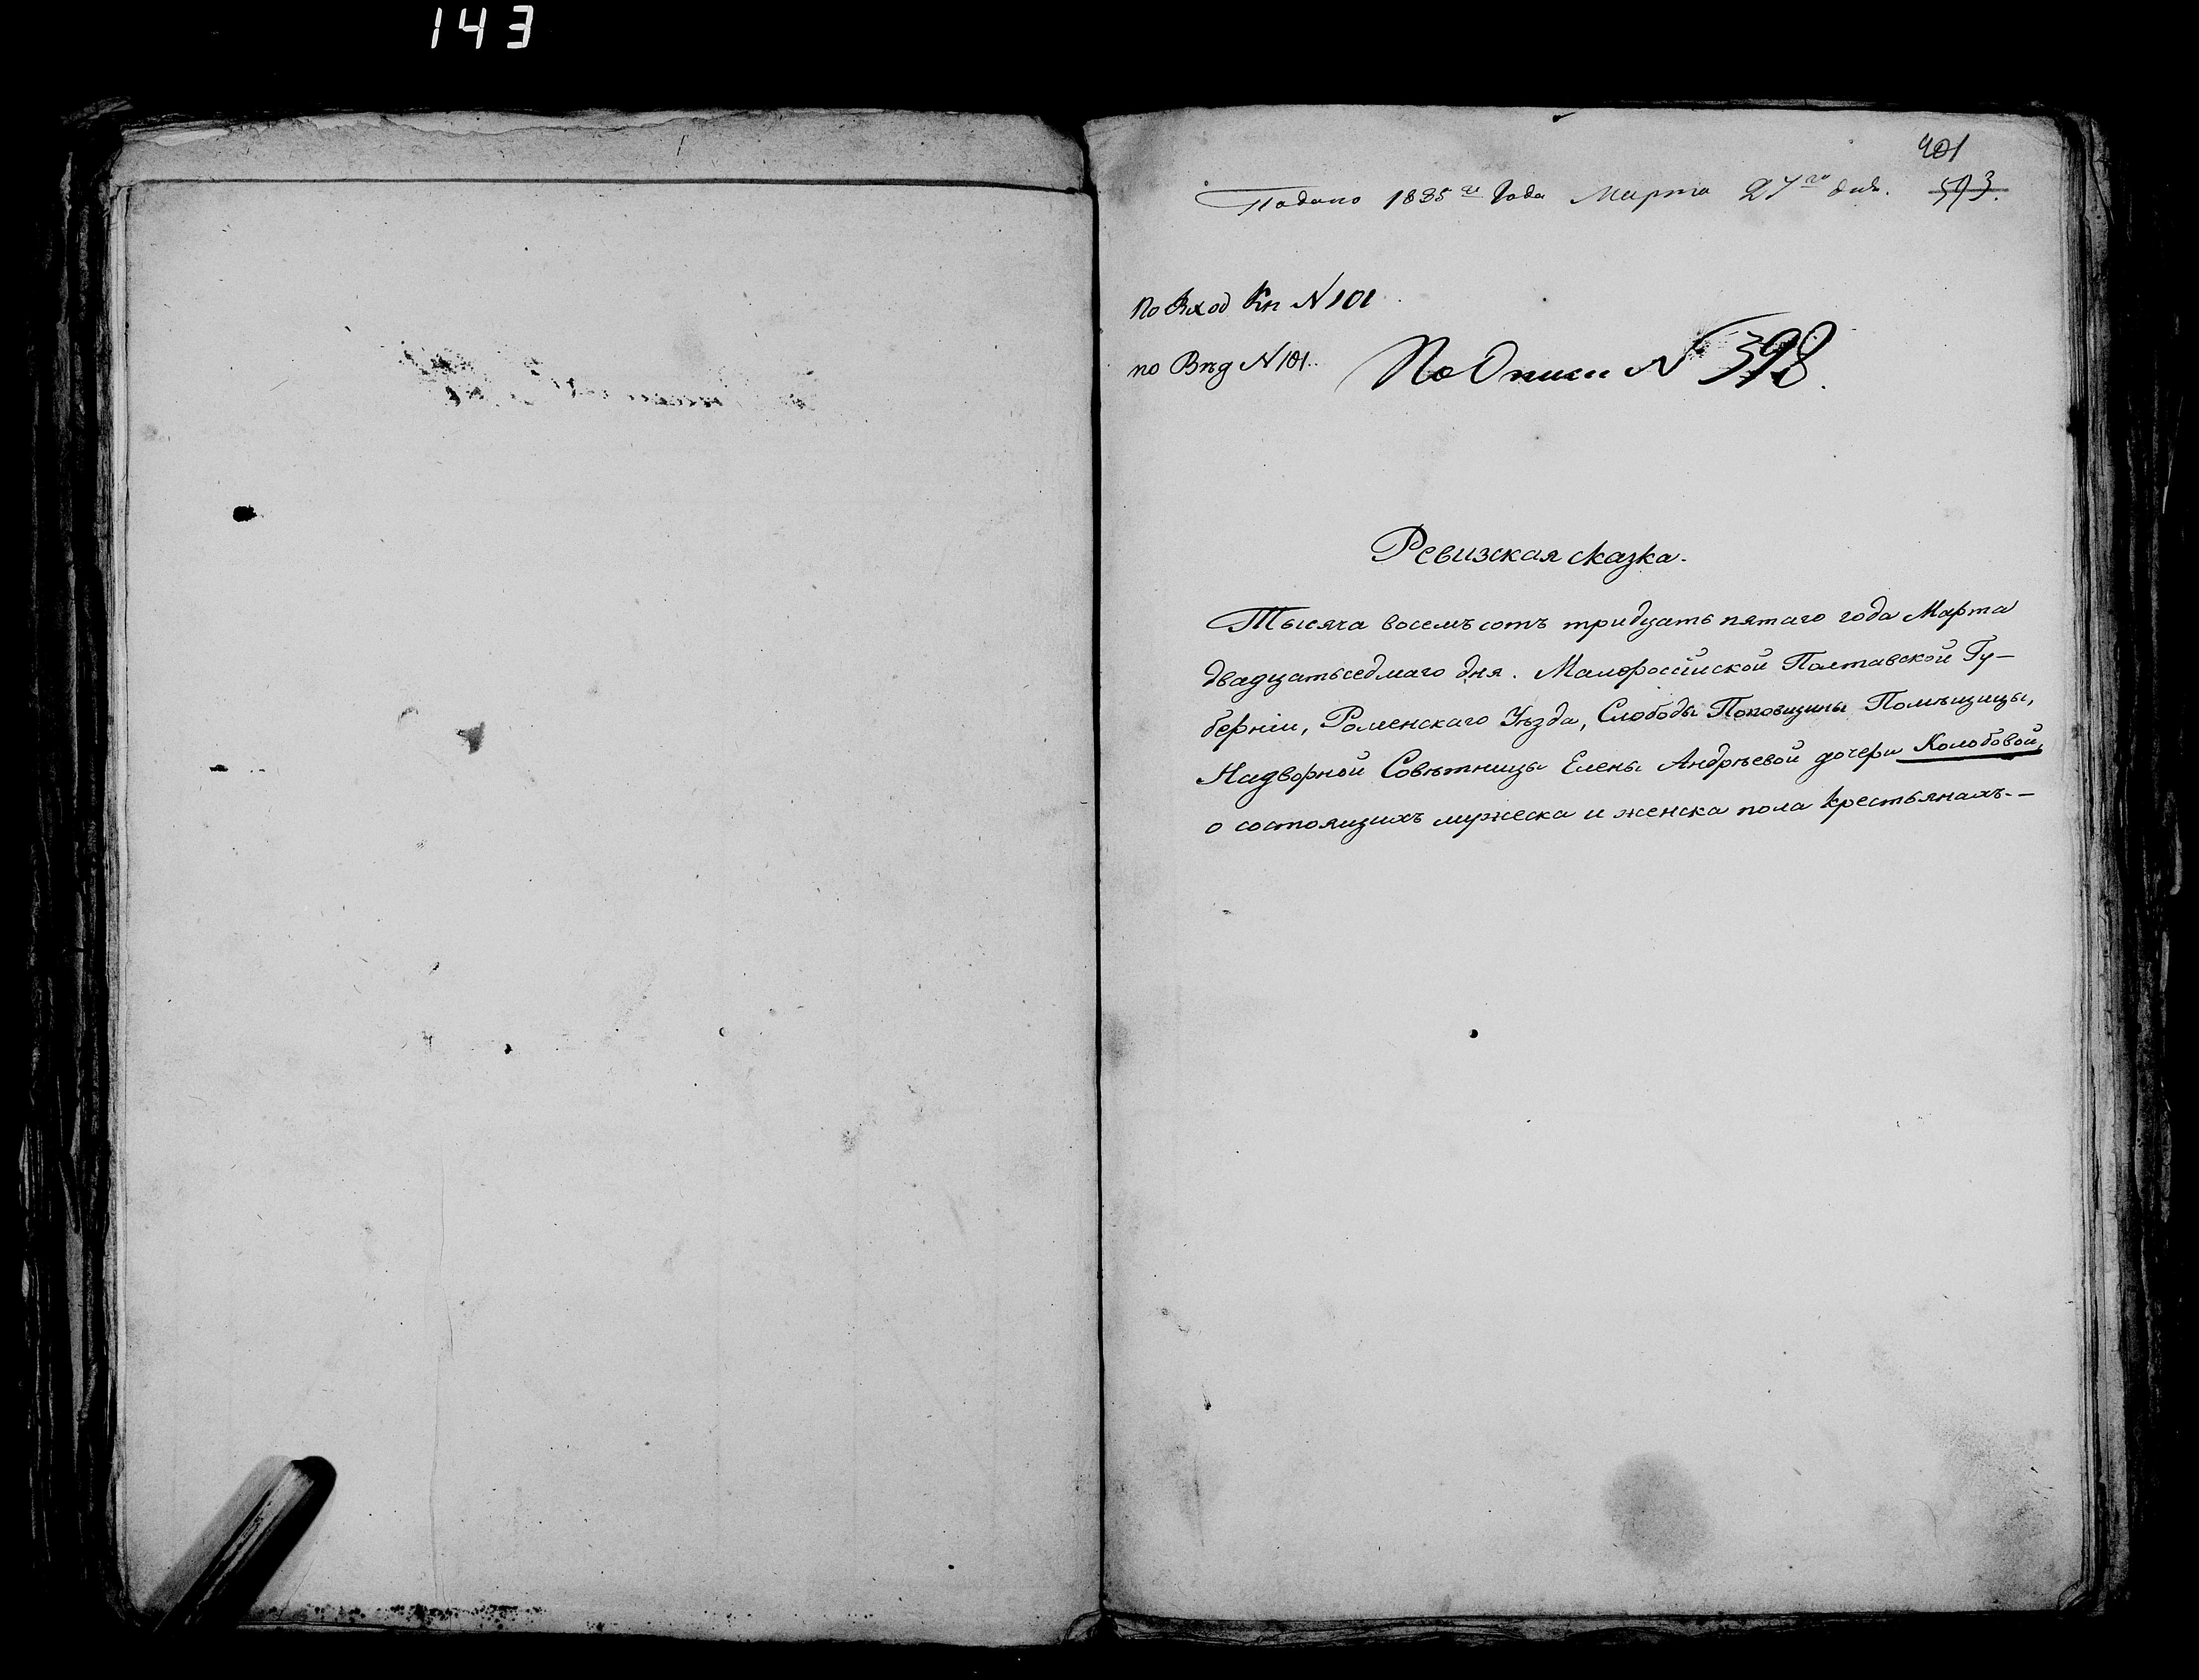 143
401
Подано 1835го Года Марта 27го дня. 593.
По Вход Кн N 101
по Вѣд N 101.
По Описи N 398.
Ревизская сказка.
Тысяча восемъсотъ тридцать пятаго года Марта
двадцатьседмаго дня. Малороссійской Полтавской Гу-
берніи, Роменскаго Уѣзда, Слободы Поповщины Помѣщицы,
Надворной Совѣтницы Елены Андрѣевой дочери Колобовой,
о состоящихъ мужеска и женска пола крестьянахъ.-